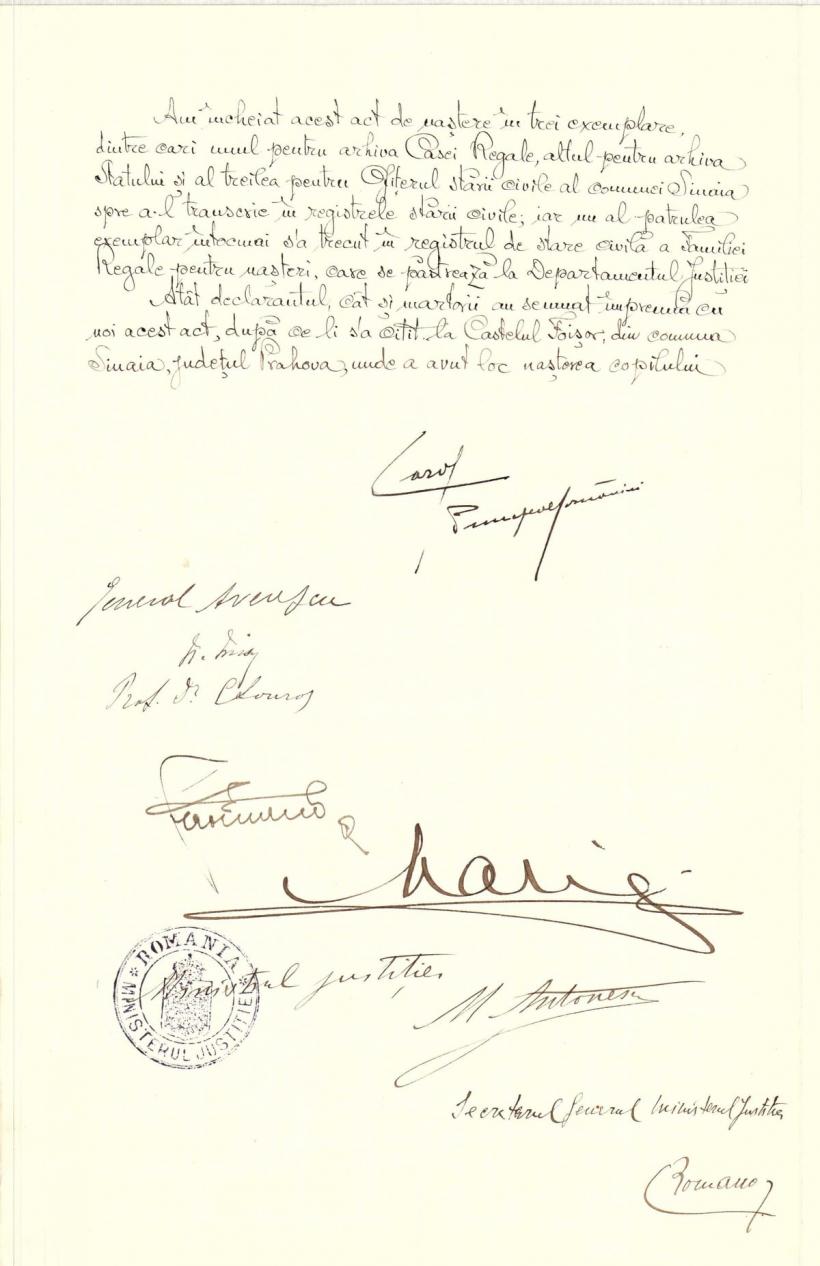 Am încheiat acest act de naștere în trei exemplare,
dintre cari unul pentru arhiva Casei Regale, altul pentru arhiva
Statului și al treilea pentru Ofițerul stării civile al comunei Sinaia
spre a-l transcrie în registrele stării civile; iar un al patrulea
exemplar întocmai s'a trecut în registrul de stare civilă a Familiei
Regale pentru nașteri, care se păstrează la Departamentul Justiției
Atât declarantul, cât și martorii au semnat împreună cu
noi acest act, după ce li s'a citit la Castelul Foișor, din comuna
Sinaia, județul Prahova, unde a avut loc nașterea copilului
Carol
Principele României
General Averescu
Prof. Dr. C Louros
Ferdinand
Marie
ROMANIA
MINISTERUL JUSTIȚIEI
Ministrul justiției
M Antonescu
Secretarul General Ministerul Justitiei